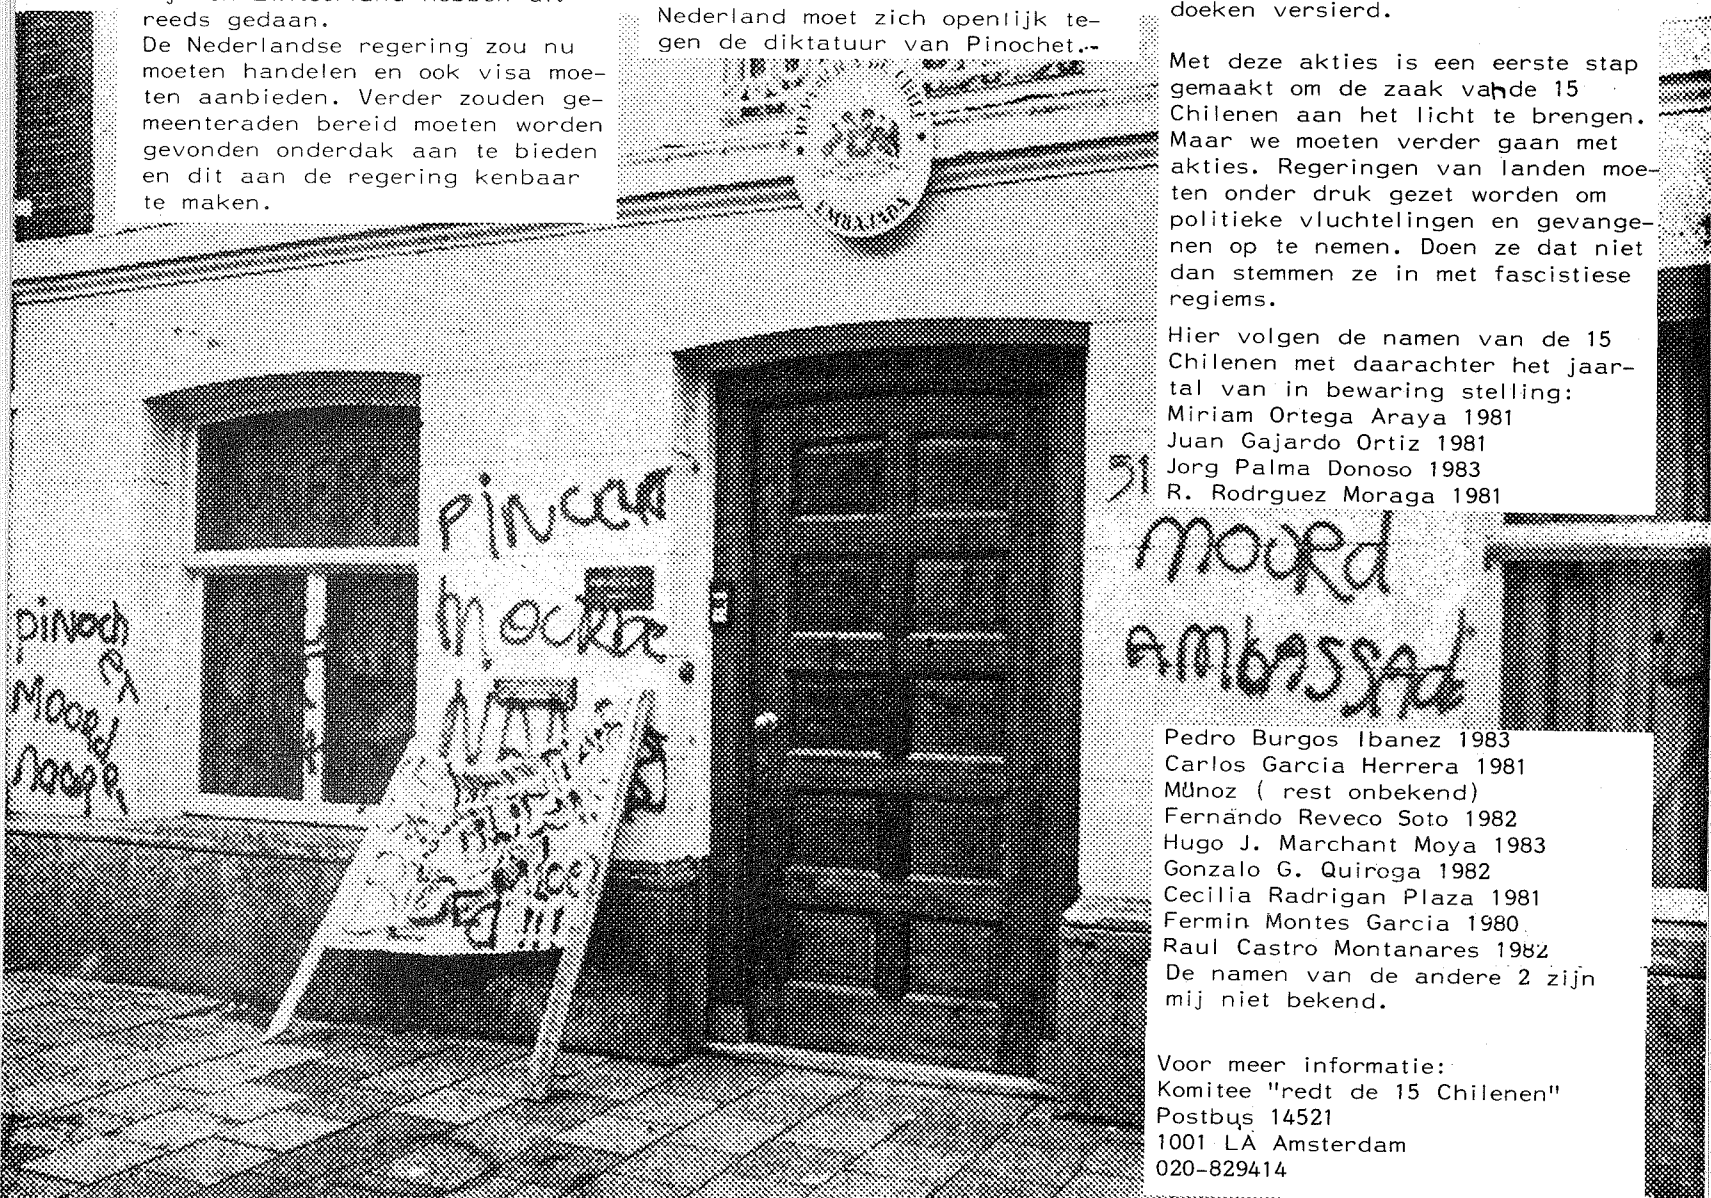 reeds gedaan.
De Nederlandse regering zou nu
moeten handelen en ook visa moe-
ten aanbieden. Verder zouden ge-
meenteraden bereid moeten worden
gevonden onderdak aan te bieden
en dit aan de regering kenbaar
te maken.
Nederland moet zich openlijk te-
gen de diktatuur van Pinochet.--
doeken versierd.
Met deze akties is een eerste stap
gemaakt om de zaak vahde 15
Chilenen aan het licht te brengen.
Maar we moeten verder gaan met
akties. Regeringen van landen moe-
ten onder druk gezet worden om
politieke vluchtelingen en gevange-
nen op te nemen. Doen ze dat niet
dan stemmen ze in met fascistiese
regiems.
Hier volgen de namen van de 15
Chilenen met daarachter het jaar-
tal van in bewaring stelling:
Miriam Ortega Araya 1981
Juan Gajardo Ortiz 1981
Jorg Palma Donoso 1983
R. Rodrguez Moraga 1981
EMBAJADA
51
MOORD
AMbASSAdE
pinoch
et
MOORd
Pedro Burgos Ibanez 1983
Carlos Garcia Herrera 1981
Münoz ( rest onbekend)
Fernando Reveco Soto 1982
Hugo J. Marchant Moya 1983
Gonzalo G. Quiroga 1982
Cecilia Radrigan Plaza 1981
Fermin Montes Garcia 1980
Raul Castro Montanares 1982
De namen van de andere 2 zijn
mij niet bekend.
Voor meer informatie:
Komitee "redt de 15 Chilenen"
Postbus 14521
1001 LA Amsterdam
020-829414